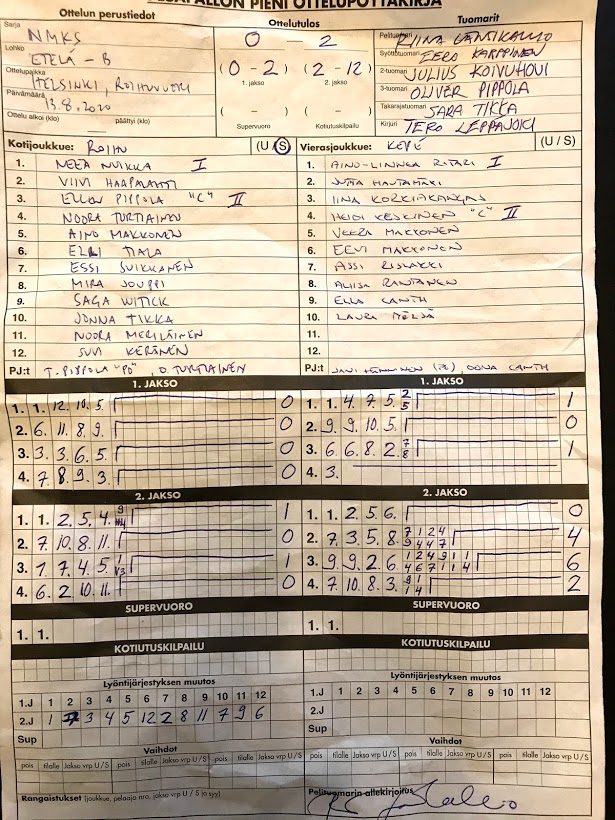 PESÄPALLON PIENI OTTELUPÖYTÄKIRJA
Ottelun perustiedot
Sarja NMKS
Lohko ETELÄ - B
Ottelupaikka HELSINKI, ROIHUVUORI
Päivämäärä 13.8.2020
Ottelu alkoi (klo) päättyi (klo)
Ottelutulos
0 - 2
(0 - 2) (2 - 12)
1. jakso 2. jakso
( - ) ( - )
Supervuoro Kotiutuskilpailu
Tuomarit
Pelituomari RIINA
Syöttötuomari EERO KARPPINEN
2-tuomari JULIUS KOIVUHOVI
3-tuomari OLIVER PIPPOLA
Takarajatuomari SARA TIKKA
Kirjuri TERO LEPPÄJOKI
Kotijoukkue: ROIHU (U / S)
1. NEEA NUIKKA I
2. VIIVI HAAPALAHTI
3. ELLEN PIPPOLA "C" II
4. NOORA TURTIAINEN
5. AINO MAKKONEN
6. ELLI TIALA
7. ESSI SUIKKANEN
8. MIRA JOUPPI
9. SAGA WITICK
10. JONNA TIKKA
11. NOORA MERILÄINEN
12. SUVI KERÄNEN
PJ:t T. PIPPOLA "PÖ", O. TURTIAINEN
Vierasjoukkue: KEPÉ (U / S)
1. AINO-LINNEA RITARI I
2. JUTTA HAUTAMÄKI
3. IINA KORKIAKANGAS
4. HEIDI KESKINEN "C" II
5. VEERA MAKKONEN
6. EEVI MAKKONEN
7. ASSI RISLAKKI
8. ALIISA RANTANEN
9. ELLA CANTH
10. LAURA
11.
12.
PJ:t JANI OONA CANTH
1. JAKSO
1. 1. 12. 10. 5. 0
2. 6. 11. 8. 9. 0
3. 3. 6. 5. 0
4. 7. 8. 9. 3. 0
1. JAKSO
1. 1. 4. 7. 5. 2 5 1
2. 9. 9. 10. 5. 0
3. 6. 6. 8. 2. 7 8 1
4. 3.
2. JAKSO
1. 1. 2. 5. 4. 9 1
2. 7. 10. 8. 11. 0
3. 1. 7. 4. 5. 1 1
4. 6. 2. 10. 11. 0
2. JAKSO
1. 1. 2. 5. 6. 0
2. 7. 3. 5. 8. 7 1 2 4 9 4 4 7 4
3. 9. 9. 2. 6. 1 2 4 9 1 1 4 6 7 1 1 4 6
4. 7. 10. 8. 3. 9 1 1 4 2
SUPERVUORO
1. 1.
SUPERVUORO
1. 1.
KOTIUTUSKILPAILU
KOTIUTUSKILPAILU
Lyöntijärjestyksen muutos
1 2 3 4 5 6 7 8 9 10 11 12
1.J
2.J 1 3 4 5 12 2 8 11 7 9 6
Sup
Lyöntijärjestyksen muutos
1 2 3 4 5 6 7 8 9 10 11 12
1.J
2.J
Sup
Vaihdot
pois tilalle Jakso vrp U / S pois tilalle Jakso vrp U / S
Vaihdot
pois tilalle Jakso vrp U / S pois tilalle Jakso vrp U / S
Rangaistukset (joukkue, pelaaja nro, jakso vrp U / S ja syy)
Pelituomarin allekirjoitus